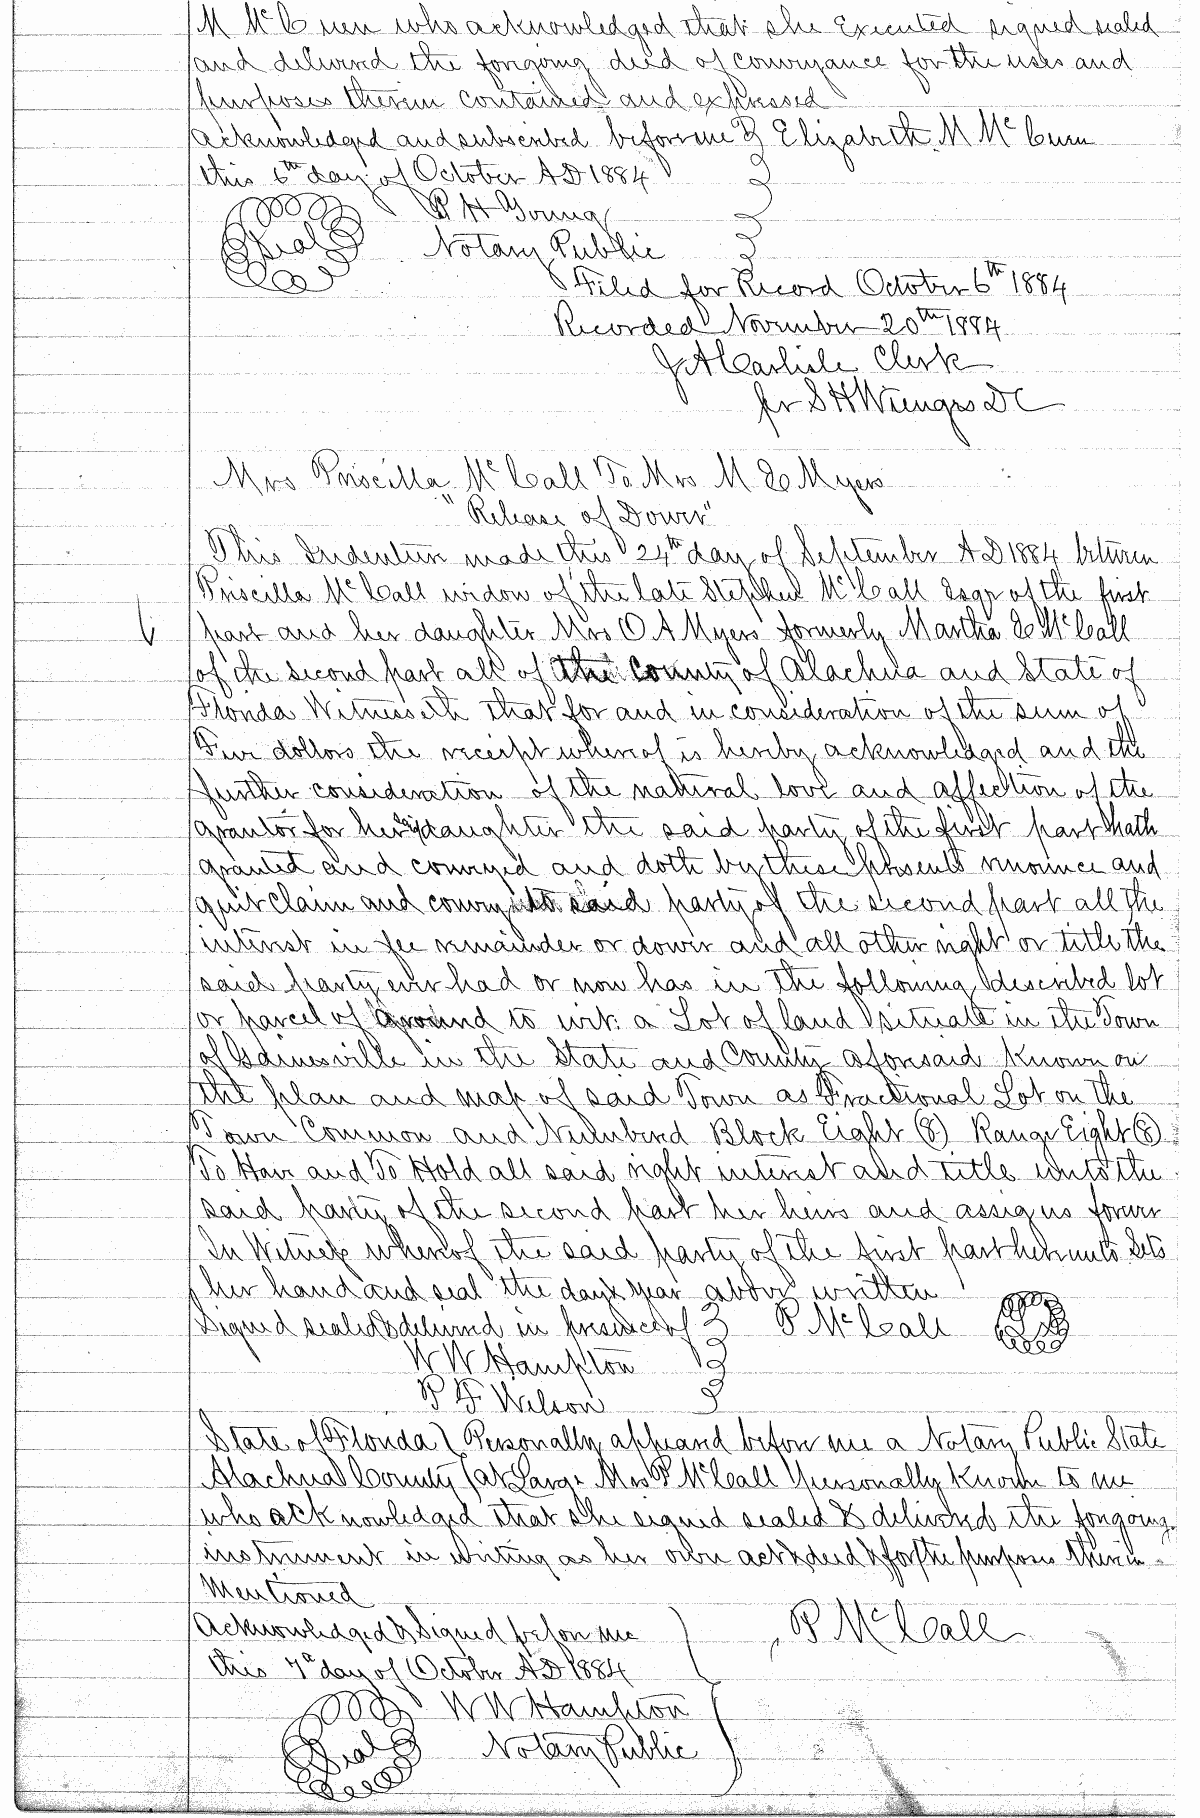 M McCuen who acknowledged that she Executed signed sealed
and delivered the foregoing deed of conveyance for the uses and
purposes therein contained and expressed
Acknowledged and subscribed before me } Elizabeth M McCuen
this 6th day of October AD 1884
P H Young
Seal Notary Public
Filed for Record October 6th 1884
Recorded November 20th 1884
J A Carlisle Clerk
per S H Wienges DC
Mrs Priscilla McCall To Mrs M E Myers
"Release of Dower"
This Indenture made this 24th day of September AD 1884 between
Priscilla McCall widow of the late Stephen McCall Esqr of the first
part and her daughter Mrs O A Myers formerly Martha E McCall
of the second part all of the County of Alachua and State of
Florida Witnesseth that for and in consideration of the sum of
Five dollars the receipt whereof is hereby acknowledged and the
further consideration of the natural love and affection of the
grantor for her said daughter the said party of the first part hath
granted and conveyed and doth by these presents renounce and
quit claim and convey unto said party of the second part all the
interest in fee remainder or dower and all other right or title the
said party ever had or now has in the following described lot
or parcel of Ground to wit: a Lot of land situate in the Town
of Gainesville in the State and County aforesaid known on
the plan and map of said Town as Fractional Lot on the
Town Common and Numbered Block Eight (8) Range Eight (8)
To Have and To Hold all said right interest and title unto the
said party of the second part her heirs and assigns forever
In Witness whereof the said party of the first part hereunto sets
her hand and seal the day & year above written
Signed sealed & delivered in presence of } P McCall Seal
W W Hampton
P F Wilson
State of Florida } Personally appeared before me a Notary Public State
Alachua County } at Large Mrs P McCall personally known to me
who acknowledged that she signed sealed & delivered the foregoing
instrument in writing as her own act & deed & for the purposes therein
Mentioned
Acknowledged & Signed before me } P McCall
this 7th day of October AD 1884
W W Hampton
Seal Notary Public